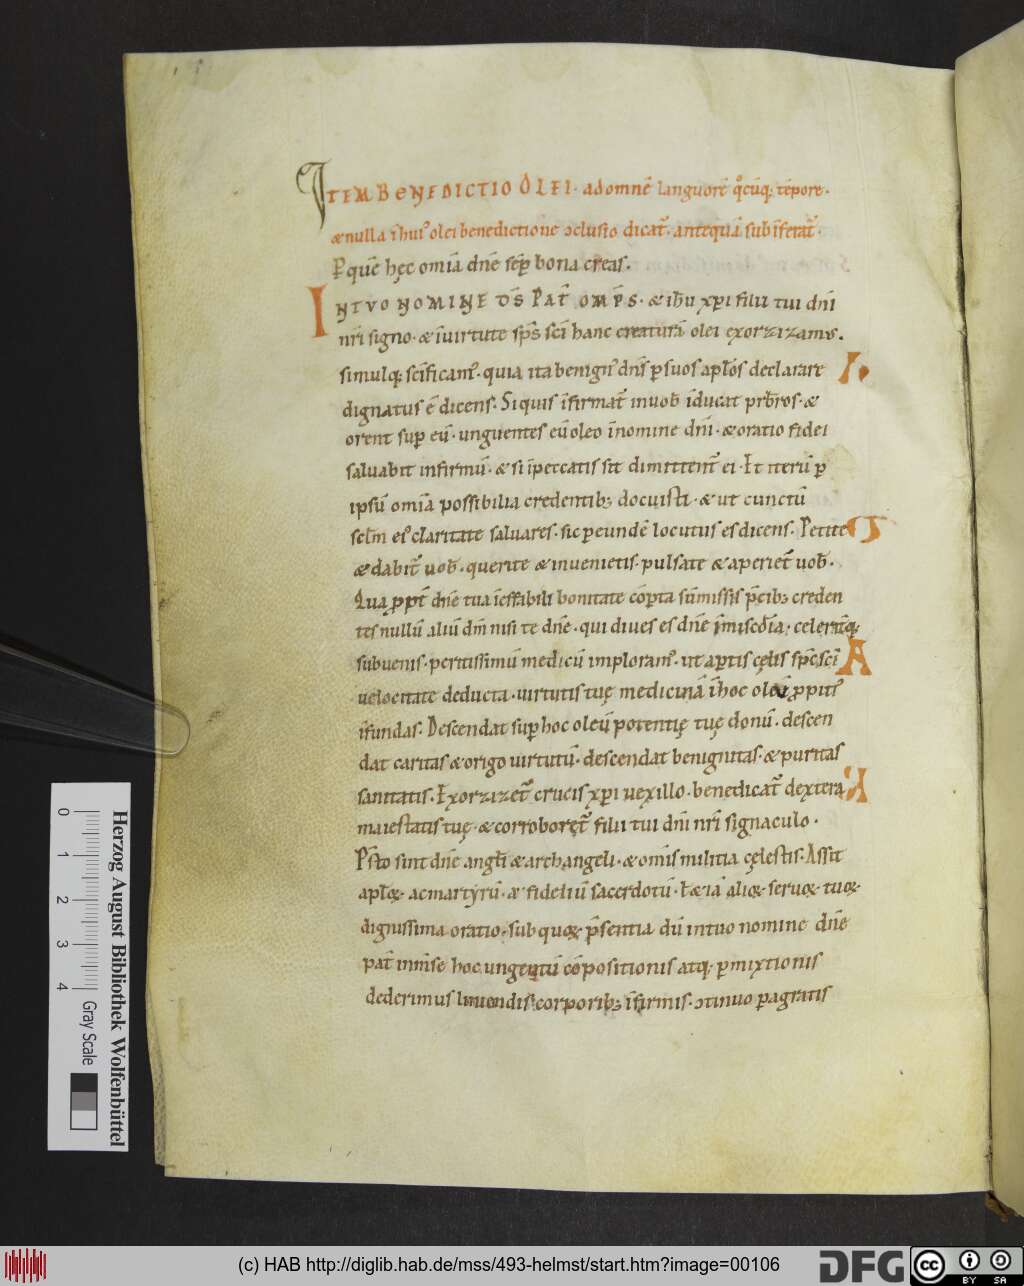 ITEM BENEDICTIO OLEI· ad omnē languorē q̊cūq; tēpore·
& nulla ī hui᾽ olei benedictione ɔclusio dicat᷑· anteqūā sub īferat᷑·
P quē hęc omīa dn̄e sēp bona creas.
IN TVO NOMINE DS̄ PAT᷑ OMP̄S· & ih̄u xp̄i filii tui dn̄i
nr̄i signo· & ī uirtute sp̄s sc̄i hanc creaturā olei exorzizamus.
simulq; sc̄ificam᾽· quia ita benign᾽ dn̄s p suos apłos declarare
dignatus ē dicens. Si quis īfirmat᷑ in uob̄ īducat prb̄ros· &
orent sup eū· unguentes eū oleo ī nomine dn̄i· & oratio fidei
saluabit infirmū· & si ī peccatis sit dimittent᷑ ei· Et iterū p
ipsū omīa possibilia credentib; docuisti· & ut cunctū
sclm̄ ei᾽ claritate saluares· sic p eundē locutus es dicens. Petite
& dabit᷑ uob̄· querite & inuenietis· pulsate & aperiet᷑ uob̄·
Qua ppt᷑ dn̄e tua īeffabili bonitate cōpta sūmissis p̄cib; creden
tes nullū aliū dm̄ nisi te dn̄e· qui diues es dn̄e ī miscd̄ia; celerit̄q;
subuenis· peritissimū medicū imploram᾽· ut aptis cęlis sp̄c sc̄i
uelocitate deducta· uirtutis tuę medicinā ī hoc oleū ppiti᾽
īfundas. Descendat sup hoc oleū potentię tuę donū· descen
dat caritas & origo uirtutū· descendat benignitas· & puritas
sanitatis· Exorzizet᷑ crucis xp̄i uexillo· benedicat᷑ dextera
maiestatis tuę· & corroboret᷑ filii tui dn̄i nr̄i signaculo·
P̄sto sint dn̄e angłi & archangeli· & om̄is militia cęlestis· Assit
apłoꝝ· ac martyrū· & fideliū sacerdotū· &iā alioꝝ seruoꝝ tuoꝝ
dignissima oratio· sub quoꝝ p̄sentia dū in tuo nomine dn̄e
pat᷑ inm̄se hoc ungentū cōpositionis atq; pmixtionis
dederimus liniendis corporib; īfirmis· ɔtinuo pagratis
0 1 2 3 4
Gray Scale
Herzog August Bibliothek Wolfenbüttel
(c) HAB http://diglib.hab.de/mss/493-helmst/start.htm?image=00106
DFG
cc BY SA